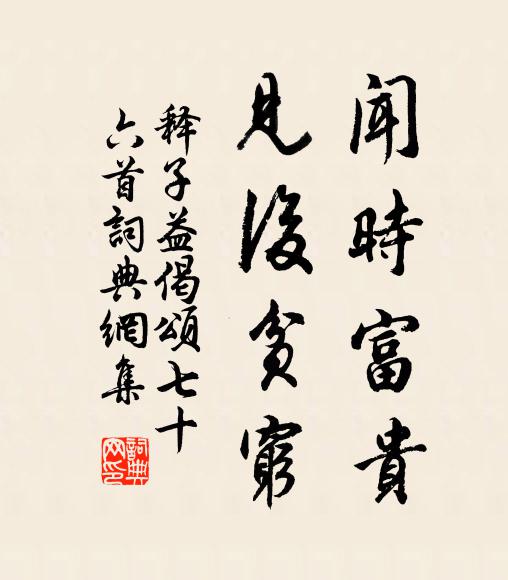 聞時富貴
見後貧窮
释子益偈頌七十
六首詞典網集
詞典
网印